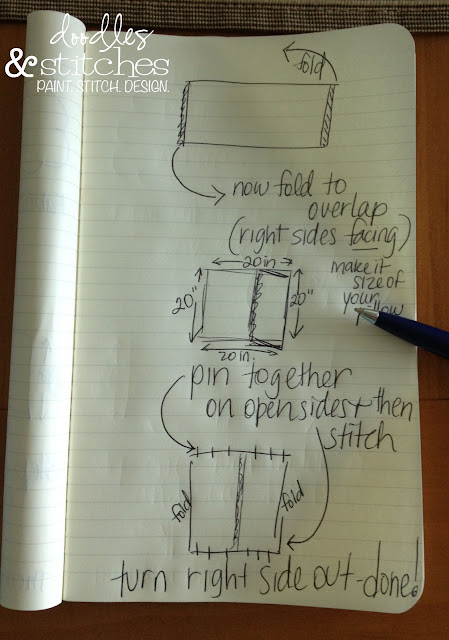 doodles
& stitches
PAINT. STITCH. DESIGN.
fold
now fold to
overlap
(right sides facing)
20 in
20"
20"
20 in.
make it
size of
your
pillow
pin together
on open sides + then
stitch
fold
fold
turn right side out - done!